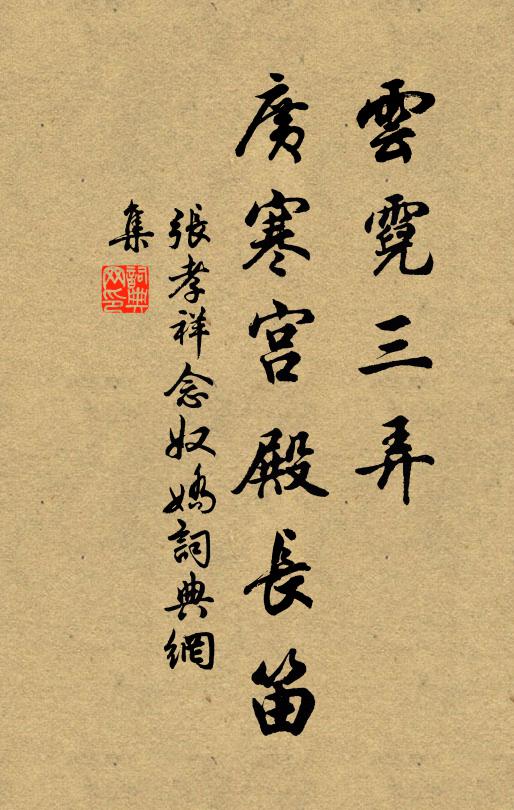 雲霓三弄
廣寒宮殿長笛
張孝祥念奴嬌詞典網
集
詞典网印